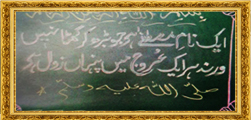 ایک نام مصطفےٰ ہے جو بڑھ کر گھٹا نہیں
ورنہ ہر ایک عروج میں پنہاں زوال ہے
صلی اللہ علیہ وسلم